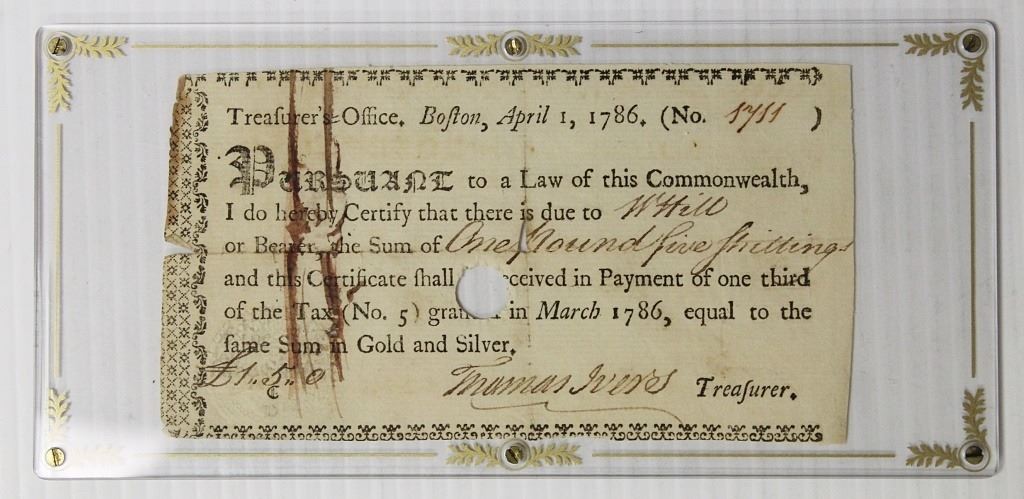 Treaſurer's-Office. Boſton, April 1, 1786. (No. 1711 )
PURSUANT to a Law of this Commonwealth,
I do hereby Certify that there is due to W Hill
or Bearer, the Sum of One Pound five ſhillings
and this Certificate ſhall received in Payment of one third
of the Tax (No. 5) in March 1786, equal to the
ſame Sum in Gold and Silver.
£1..5..0
Thomas Ivers Treaſurer.